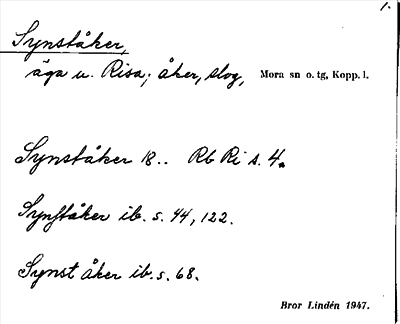 1.
Synståker,
äga u. Risa; åker, slog, Mora sn o. tg, Kopp. l.
Synståker 18.. Rb Ri s. 4.
Synståker ib. s. 44, 122.
Synst åker ib. s. 68.
Bror Lindén 1947.